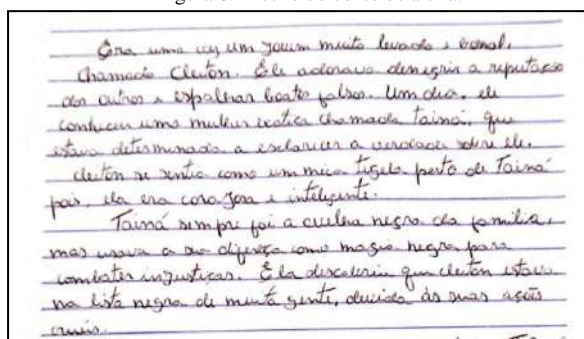 Era uma vez um jovem muito levado e banal,
chamado Cleiton. Ele adorava denegrir a reputação
dos outros e espalhar boatos falsos. Um dia, ele
conheceu uma mulher exótica chamada Tainá, que
estava determinada a esclarecer a verdade sobre ele.
Cleiton se sentia como um meia tigela perto de Tainá
pois, ela era corajosa e inteligente.
Tainá sempre foi a ovelha negra da família,
mas usava a sua difereça como magia negra para
combater injustiças. Ela descobriu que cleiton estava
na lista negra de muita gente, devido às suas ações
cruéis.